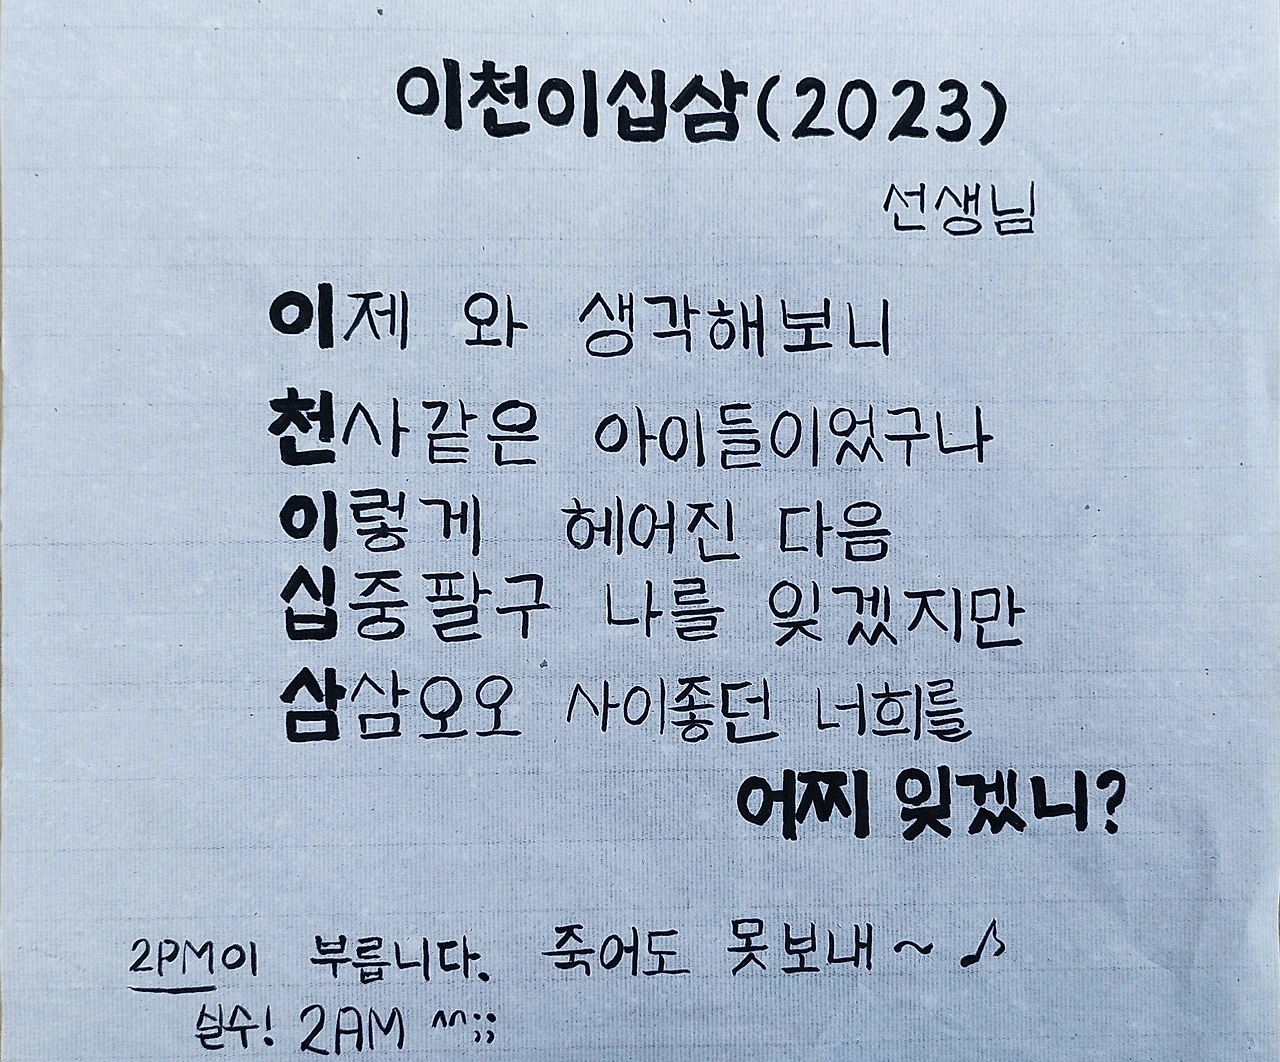 이천이십삼(2023)
선생님
이제 와 생각해보니
천사같은 아이들이었구나
이렇게 헤어진 다음
십중팔구 나를 잊겠지만
삼삼오오 사이좋던 너희를
어찌 잊겠니?
2PM이 부릅니다. 죽어도 못보내~♪
실수! 2AM ^^;;